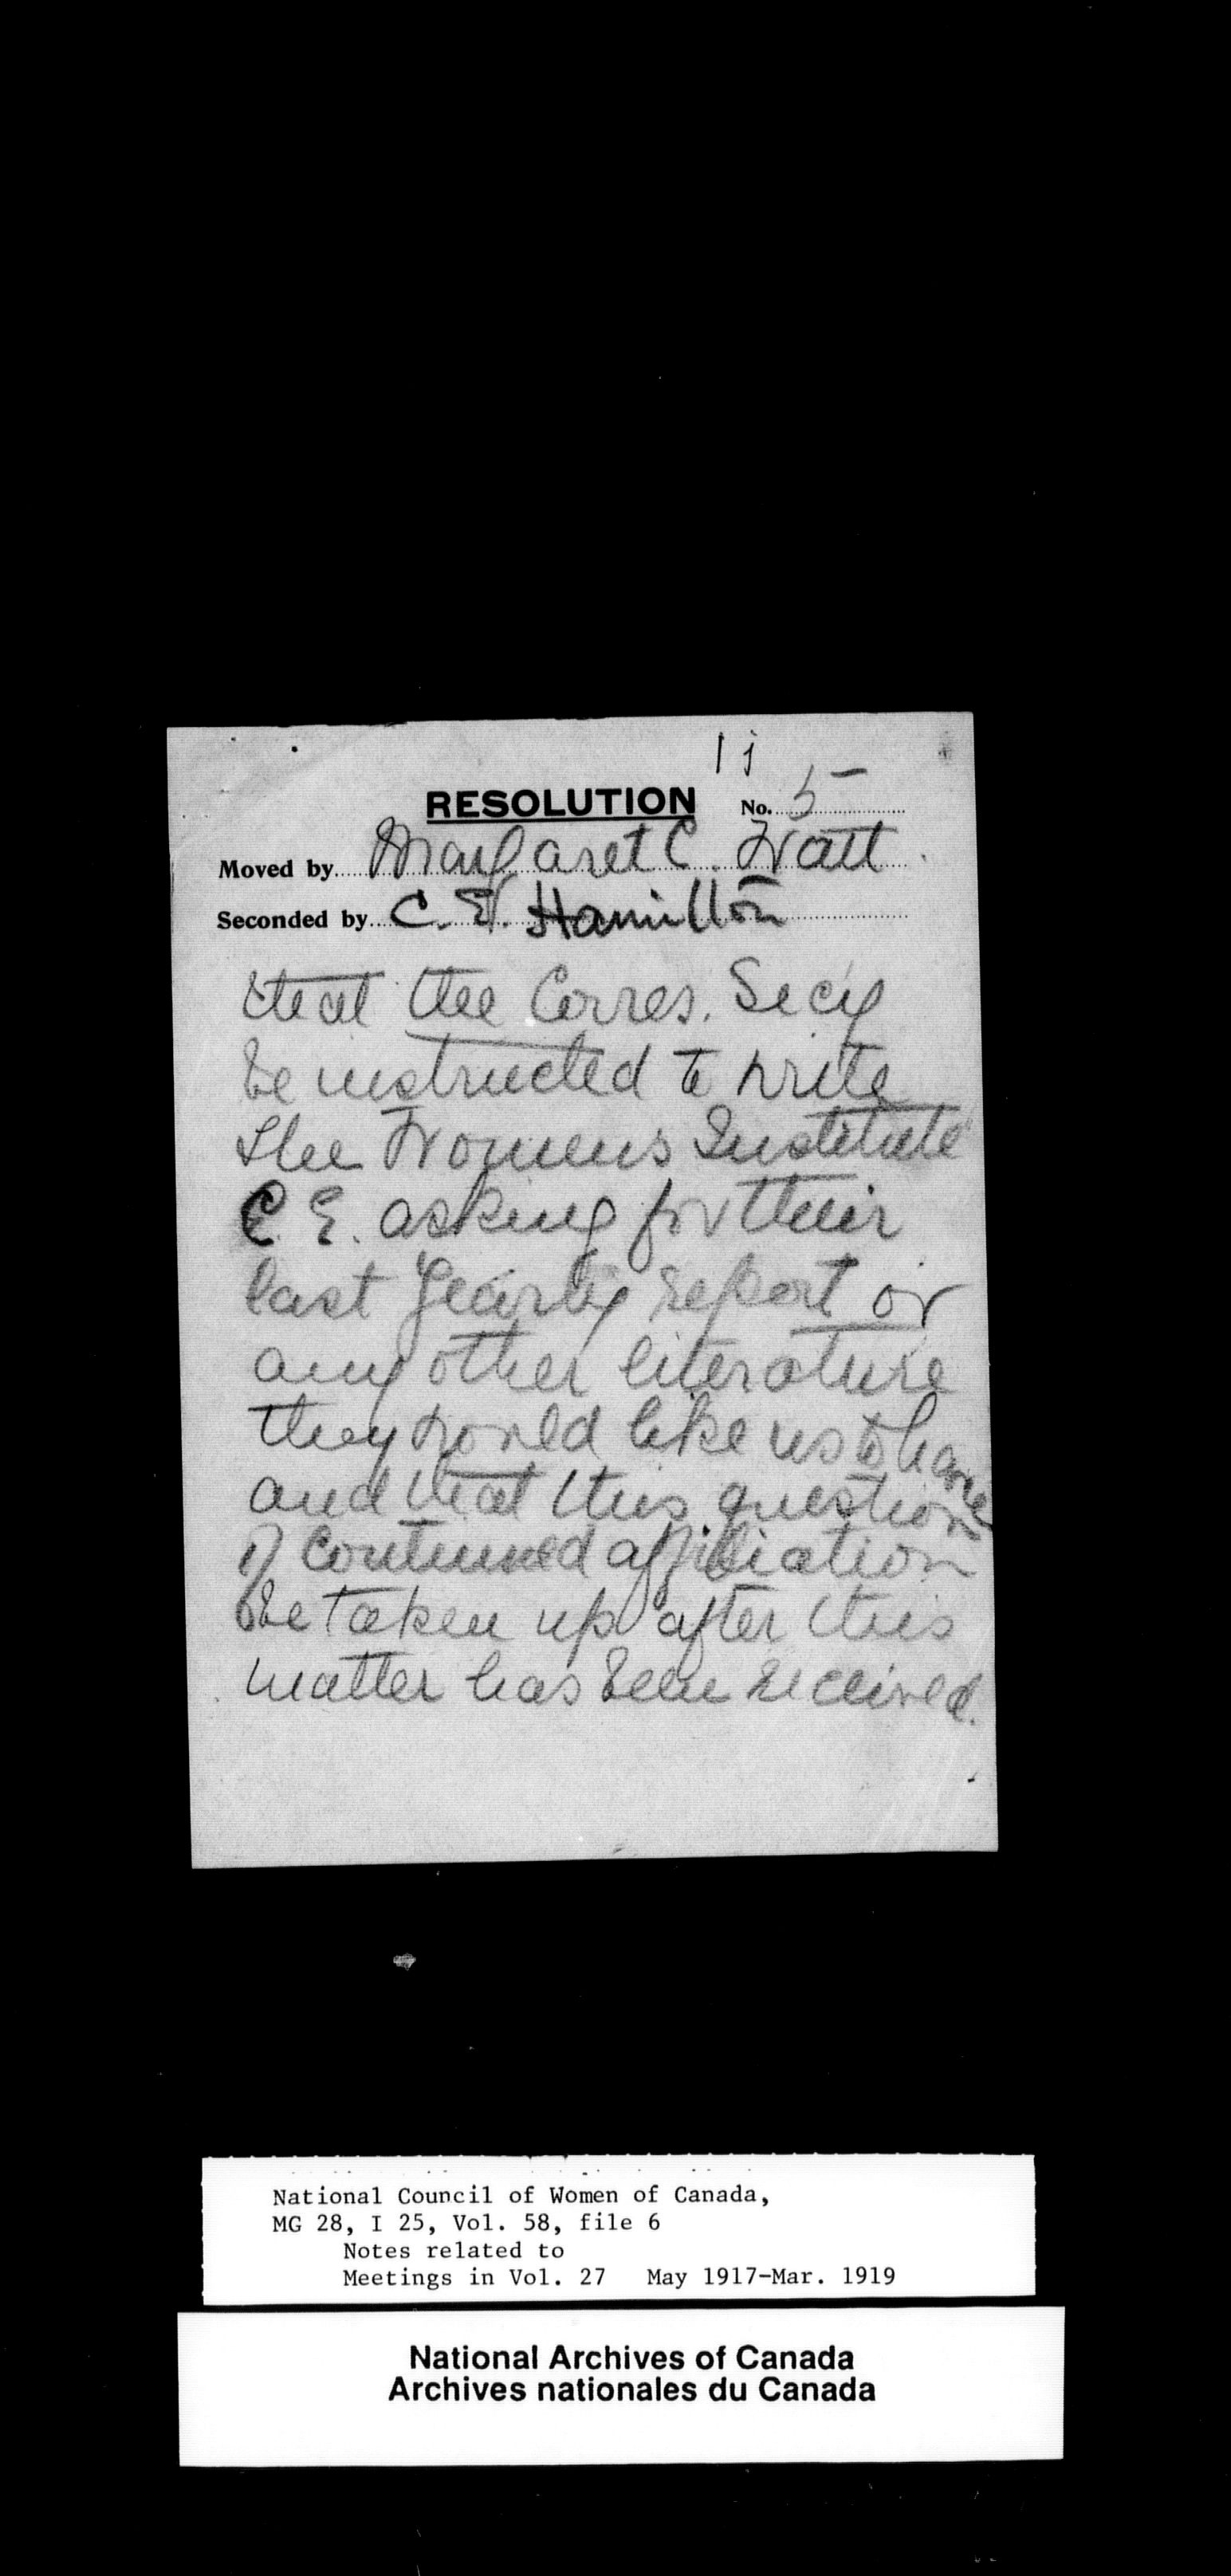 11
RESOLUTION No. 5
Moved by Margaret C. Watt
Seconded by C. E. Hamilton
that the Corres. Secy
be instructed to write
the Womens Institute
C. E. asking for their
last yearly report or
any other literature
they would like us to have
and that this question
of continued affiliation
be taken up after this
matter has been received.
National Council of Women of Canada,
MG 28, I 25, Vol. 58, file 6
Notes related to
Meetings in Vol. 27 May 1917-Mar. 1919
National Archives of Canada
Archives nationales du Canada